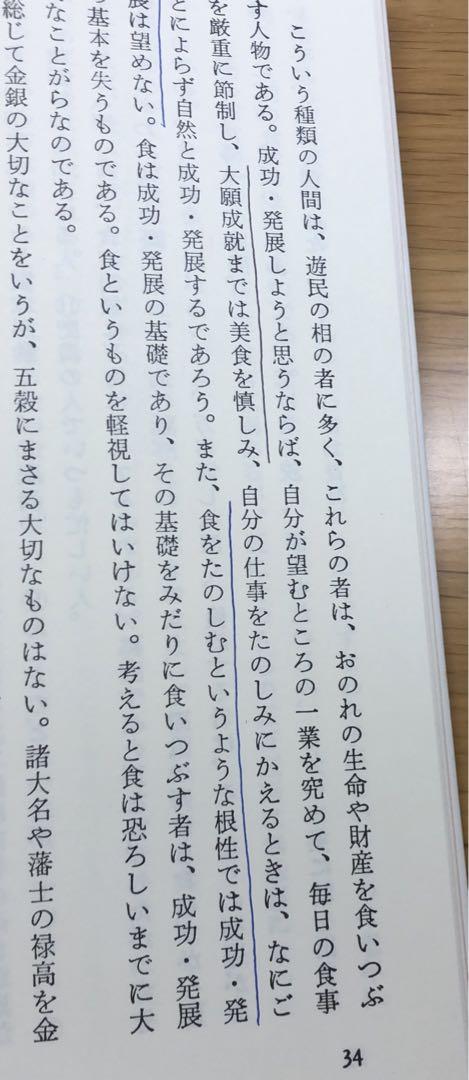 こういう種類の人間は、遊民の相の者に多く、これらの者は、おのれの生命や財産を食いつぶ
す人物である。成功・発展しようと思うならば、自分が望むところの一業を究めて、毎日の食事
を厳重に節制し、大願成就までは美食を慎しみ、自分の仕事をたのしみにかえるときは、なにご
とによらず自然と成功・発展するであろう。また、食をたのしむというような根性では成功・発
展は望めない。食は成功・発展の基礎であり、その基礎をみだりに食いつぶす者は、成功・発展
基本を失うものである。食というものを軽視してはいけない。考えると食は恐ろしいまでに大
なことがらなのである。
総じて金銀の大切なことをいうが、五穀にまさる大切なものはない。諸大名や藩士の禄高を金
34